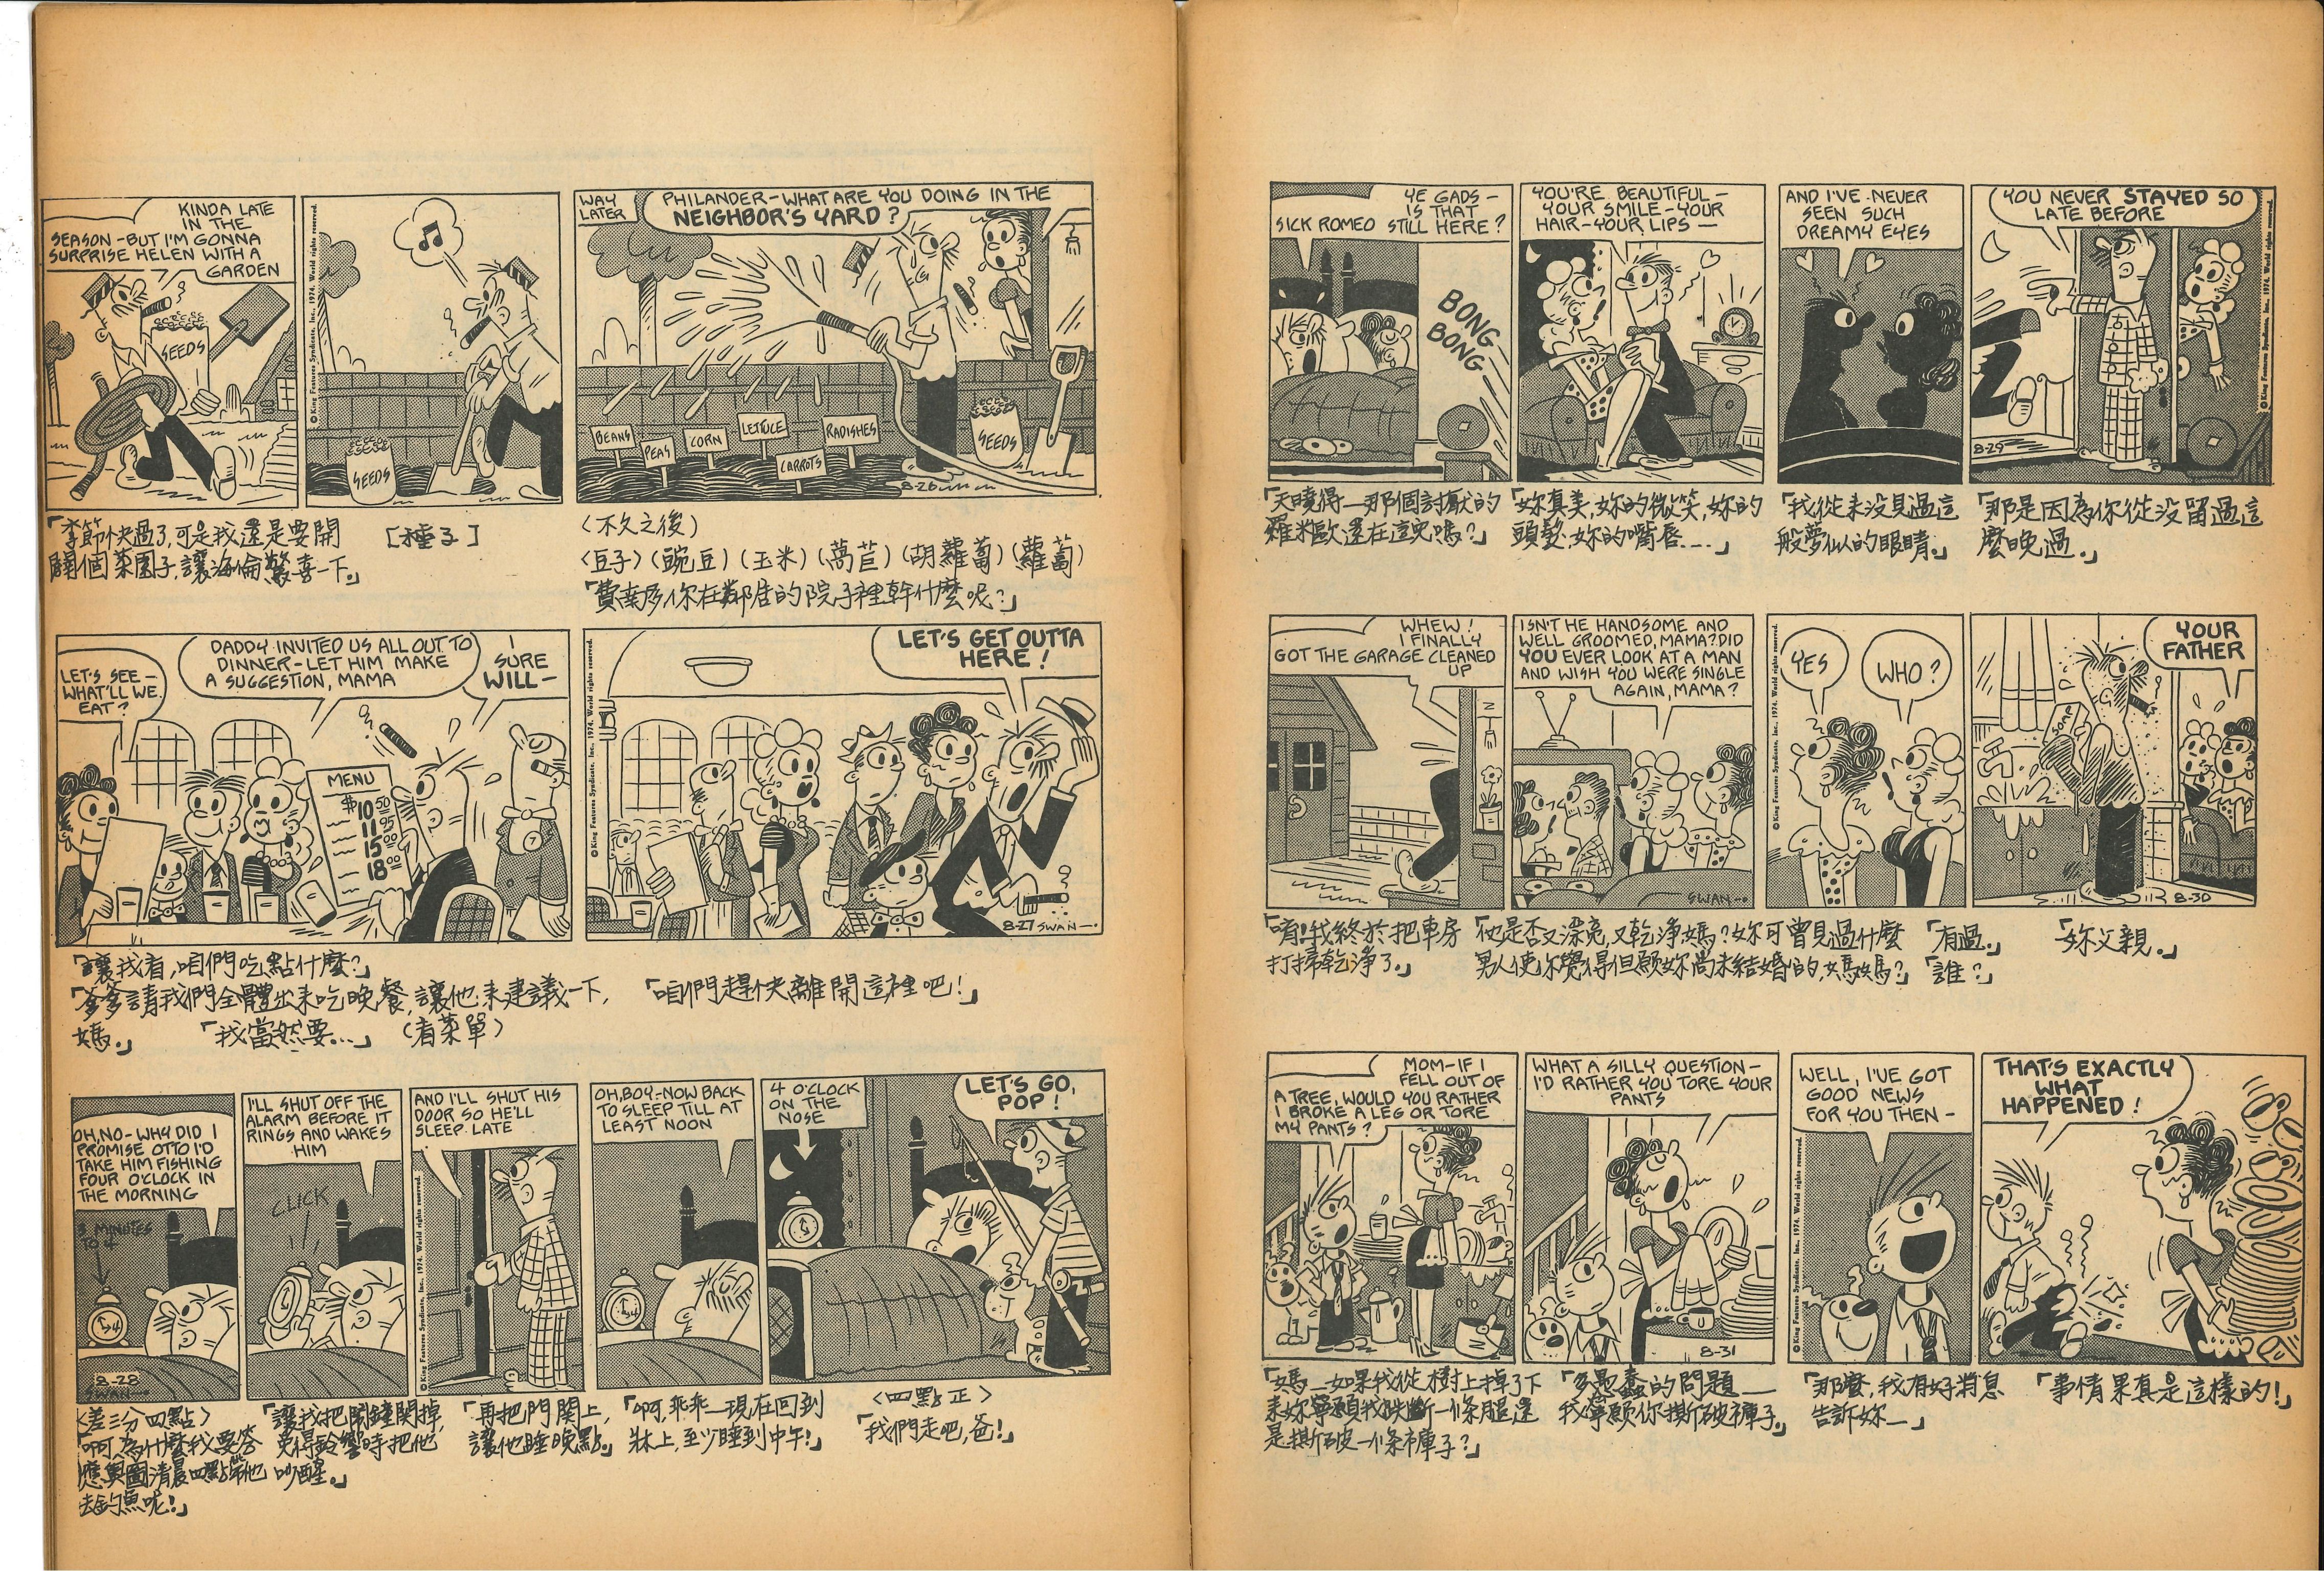 KINDA LATE
IN THE
SEASON-BUT I'M GONNA
SURPRISE HELEN WITH A
GARDEN
SEEDS
© King Features Syndicate, Inc., 1974. World rights reserved.
SEEDS
WAY
LATER
PHILANDER-WHAT ARE YOU DOING IN THE
NEIGHBOR'S YARD?
BEANS
PEAS
CORN
LETTUCE
CARROTS
RADISHES
SEEDS
8-26
「季節快過了,可是我還是要開
闢個菜園子,讓海倫驚喜一下。」
[種子]
〈不久之後〉
〈豆子〉(豌豆)(玉米)(萵苣)(胡蘿蔔)(蘿蔔)
「費幸多你在鄰居的院子裡幹什麼呢?」
LET'S SEE-
WHAT'LL WE
EAT?
DADDY INVITED US ALL OUT TO
DINNER-LET HIM MAKE
A SUGGESTION, MAMA
I
SURE
WILL-
MENU
$10.50
11.95
15.00
18.00
7
© King Features Syndicate, Inc., 1974. World rights reserved.
LET'S GET OUTTA
HERE!
8-27 SWAN
「讓我看,咱們吃點什麼?」
「爹爹請我們全體出來吃晚餐,讓他來建議一下,
媽。」
「我當然要...」
(看菜單)
「咱們趕快離開這裡吧!」
OH,NO-WHY DID I
PROMISE OTTO I'D
TAKE HIM FISHING
FOUR O'CLOCK IN
THE MORNING
3 MINUTES
TO 4
8-28
SWAN
I'LL SHUT OFF THE
ALARM BEFORE IT
RINGS AND WAKES
HIM
CLICK
AND I'LL SHUT HIS
DOOR SO HE'LL
SLEEP LATE
© King Features Syndicate, Inc., 1974. World rights reserved.
OH,BOY-NOW BACK
TO SLEEP TILL AT
LEAST NOON
4 O'CLOCK
ON THE
NOSE
LET'S GO,
POP!
〈差三分四點〉
「啊,為什麼我要答
應奧圖清晨四點帶他
去釣魚呢!」
「讓我把鬧鐘關掉,
免得鈴響時把他
吵醒。」
「再把門關上,
讓他睡晚點。」
「啊,乖乖—現在回到
牀上,至少睡到中午!」
〈四點正〉
「我們走吧,爸!」
YE GADS-
IS THAT
SICK ROMEO STILL HERE?
BONG
BONG
YOU'RE BEAUTIFUL-
YOUR SMILE-YOUR
HAIR-YOUR LIPS-
AND I'VE NEVER
SEEN SUCH
DREAMY EYES
YOU NEVER STAYED SO
LATE BEFORE
8-29
© King Features Syndicate, Inc., 1974. World rights reserved.
「天曉得—那個討厭的
羅米歐還在這兒嗎?」
「妳真美,妳的微笑,妳的
頭髮,妳的嘴唇....」
「我從未没見過這
般夢似的眼睛。」
「那是因為你從没留過這
麼晚過。」
WHEW!
I FINALLY
GOT THE GARAGE CLEANED
UP
ISN'T HE HANDSOME AND
WELL GROOMED, MAMA? DID
YOU EVER LOOK AT A MAN
AND WISH YOU WERE SINGLE
AGAIN, MAMA?
SWAN
© King Features Syndicate, Inc., 1974. World rights reserved.
YES
WHO?
SOAP
YOUR
FATHER
8-30
「唷!我終於把車房
打掃乾淨了。」
「他是否又漂亮,又乾淨,媽?妳可曾見過什麼
男人使你覺得但願妳尚未結婚的,媽媽?」
「有過。」
「誰?」
「妳父親。」
MOM-IF I
FELL OUT OF
A TREE, WOULD YOU RATHER
I BROKE A LEG OR TORE
MY PANTS?
WHAT A SILLY QUESTION-
I'D RATHER YOU TORE YOUR
PANTS
8-31
WELL, I'VE GOT
GOOD NEWS
FOR YOU THEN-
© King Features Syndicate, Inc., 1974. World rights reserved.
THAT'S EXACTLY
WHAT
HAPPENED!
「媽—如果我從樹上掉了下
來妳寧願我跌斷一條腿還
是撕破一條褲子?」
「多愚蠢的問題—
我寧願你撕破褲子。」
「那麼,我有好消息
告訴妳—」
「事情果真是這樣的!」